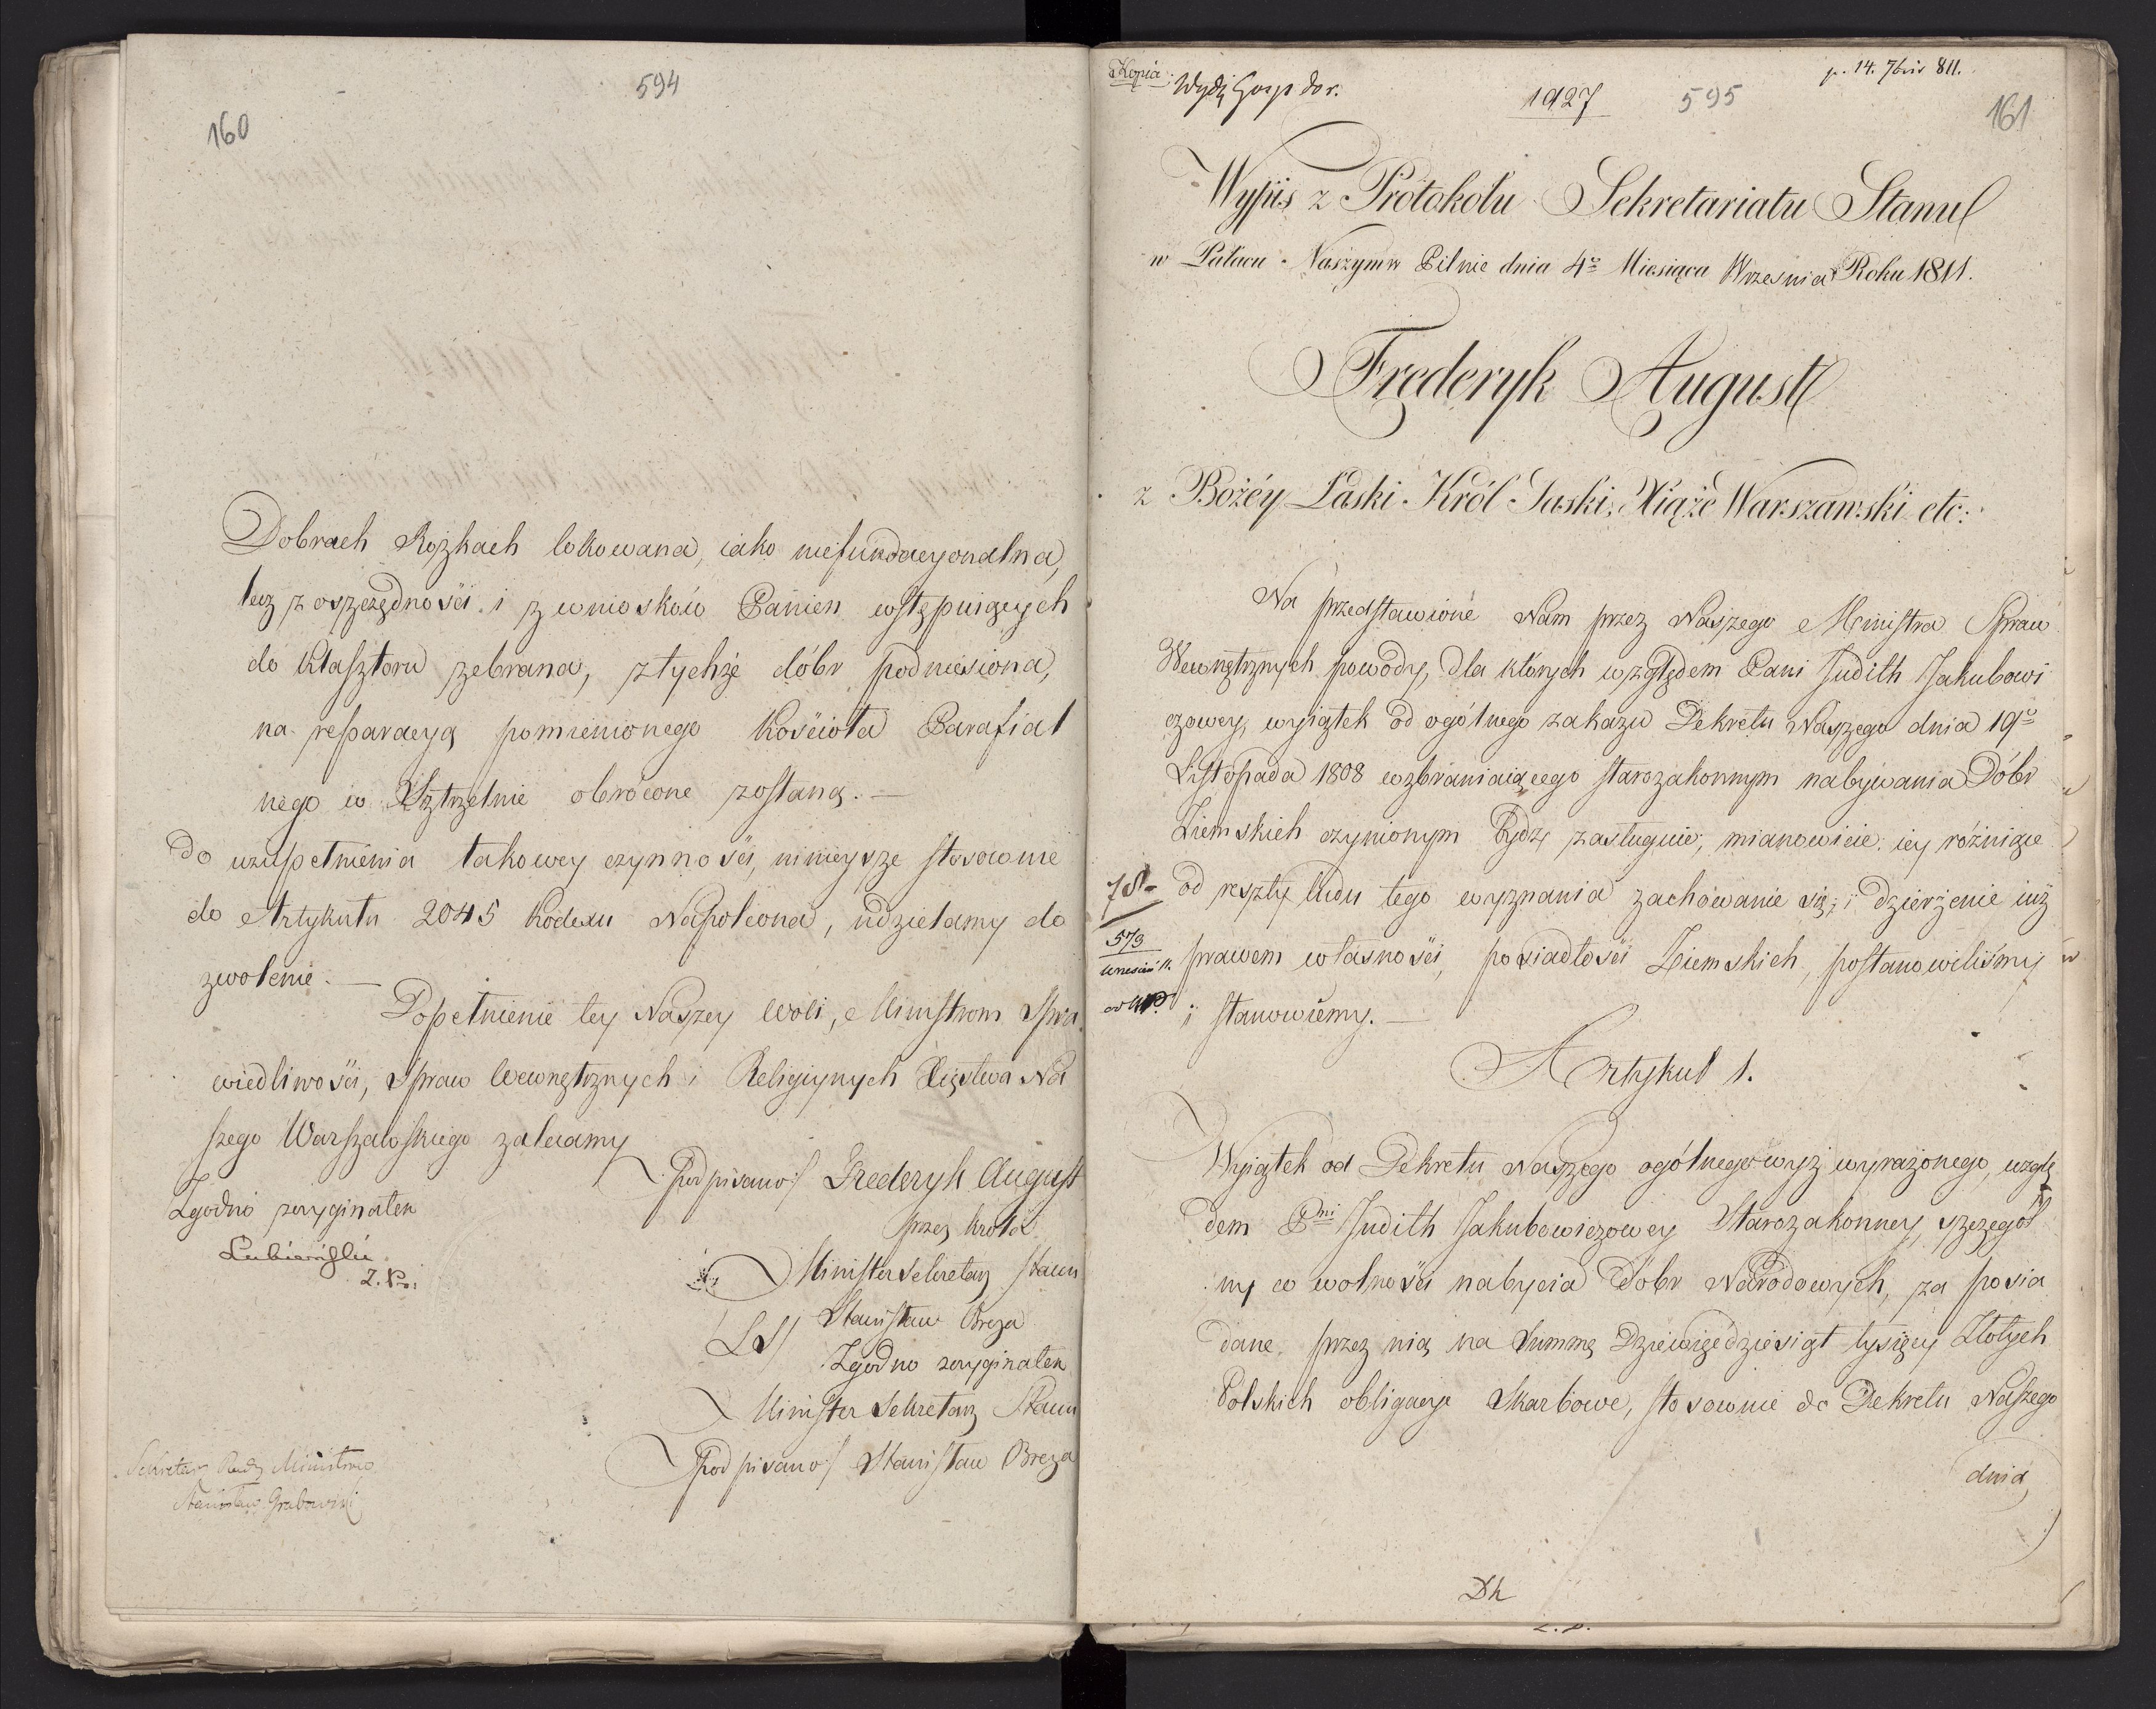 594
160
Dobrach Rożkach lokowana, iako niefundacyonalna,
lecz z oszczędności i z wniosków Panien wstępuiących
do Klasztoru zebrana, z tychże dóbr podniesiona,
na reparacyą pomienionego Kościoła Parafial
nego w Strzelnie obrócone zostaną. —
Do uzupełnienia takowey czynności, ninieysze stosownie
do Artykułu 2045 Kodexu Napoleona, udzielamy do
zwolenie. —
Dopełnienie tey Naszey woli, Ministrom Spra
wiedliwości, Spraw Wewnętrznych i Religiynych Xięstwa Na
szego Warszawskiego zalecamy
Podpisano/ Frederyk August
przez Króla
Minister Sekretarz Stanu
LS/ Stanisław Breza
Zgodno z oryginałem
Minister Sekretarz Stanu
Podpisano/ Stanisław Breza
Zgodno z oryginałem
Lubieński
Sekretarz Rady Ministrów
Stanisław Grabowski
Kopia
1927
595
p. 14. 7bris 811.
161
Wypis z Protokołu Sekretariatu Stanu
w Pałacu Naszym w Pilnie dnia 4º Miesiąca Wrzesnia Roku 1811.
Frederyk August
z Bożéy Łaski Król Saski, Xiąże Warszawski etc:
Na przedstawione Nam przez Naszego Ministra Spraw
Wewnętrznych powody, dla których względem Pani Judith Jakubowi
czowey, wyiątek od ogólnego zakazu Dekretu Naszego dnia 19º
Listopada 1808 wzbraniaiącego starozakonnym nabywania Dóbr
Ziemskich czynionym bydź zasługuie, mianowicie: iey różniące
od reszty ludu tego wyznania zachowanie się, i dzierżenie iuż
573
prawem własności, posiadłości Ziemskich, postanowiliśmy
i stanowiemy. —
Artykuł 1.
Wyiątek od Dekretu Naszego ogólnego wyż wyrażonego, wzglę
dem Pni Judith Jakubowiczowey Starozakonney, szczegól
ny w wolności nabycia Dóbr Narodowych, za posia
dane przez nią na Summę Dziewięćdziesiąt tysięcy Złotych
Polskich obligacye Skarbowe, stosownie do Dekretu Naszego
dnia